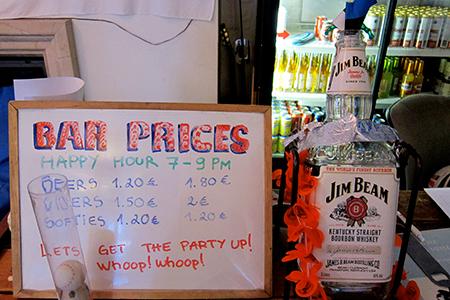 BAR PRICES
HAPPY HOUR 7-9 PM
BEERS 1.20€ 1.80€
1.50€ 2€
SOFTIES 1.20€ 1.20€
LETS GET THE PARTY UP!
WHOOP! WHOOP!
JIM BEAM
THE WORLD'S FINEST BOURBON
JIM BEAM
KENTUCKY STRAIGHT
BOURBON WHISKEY
JAMES B. BEAM DISTILLING CO.